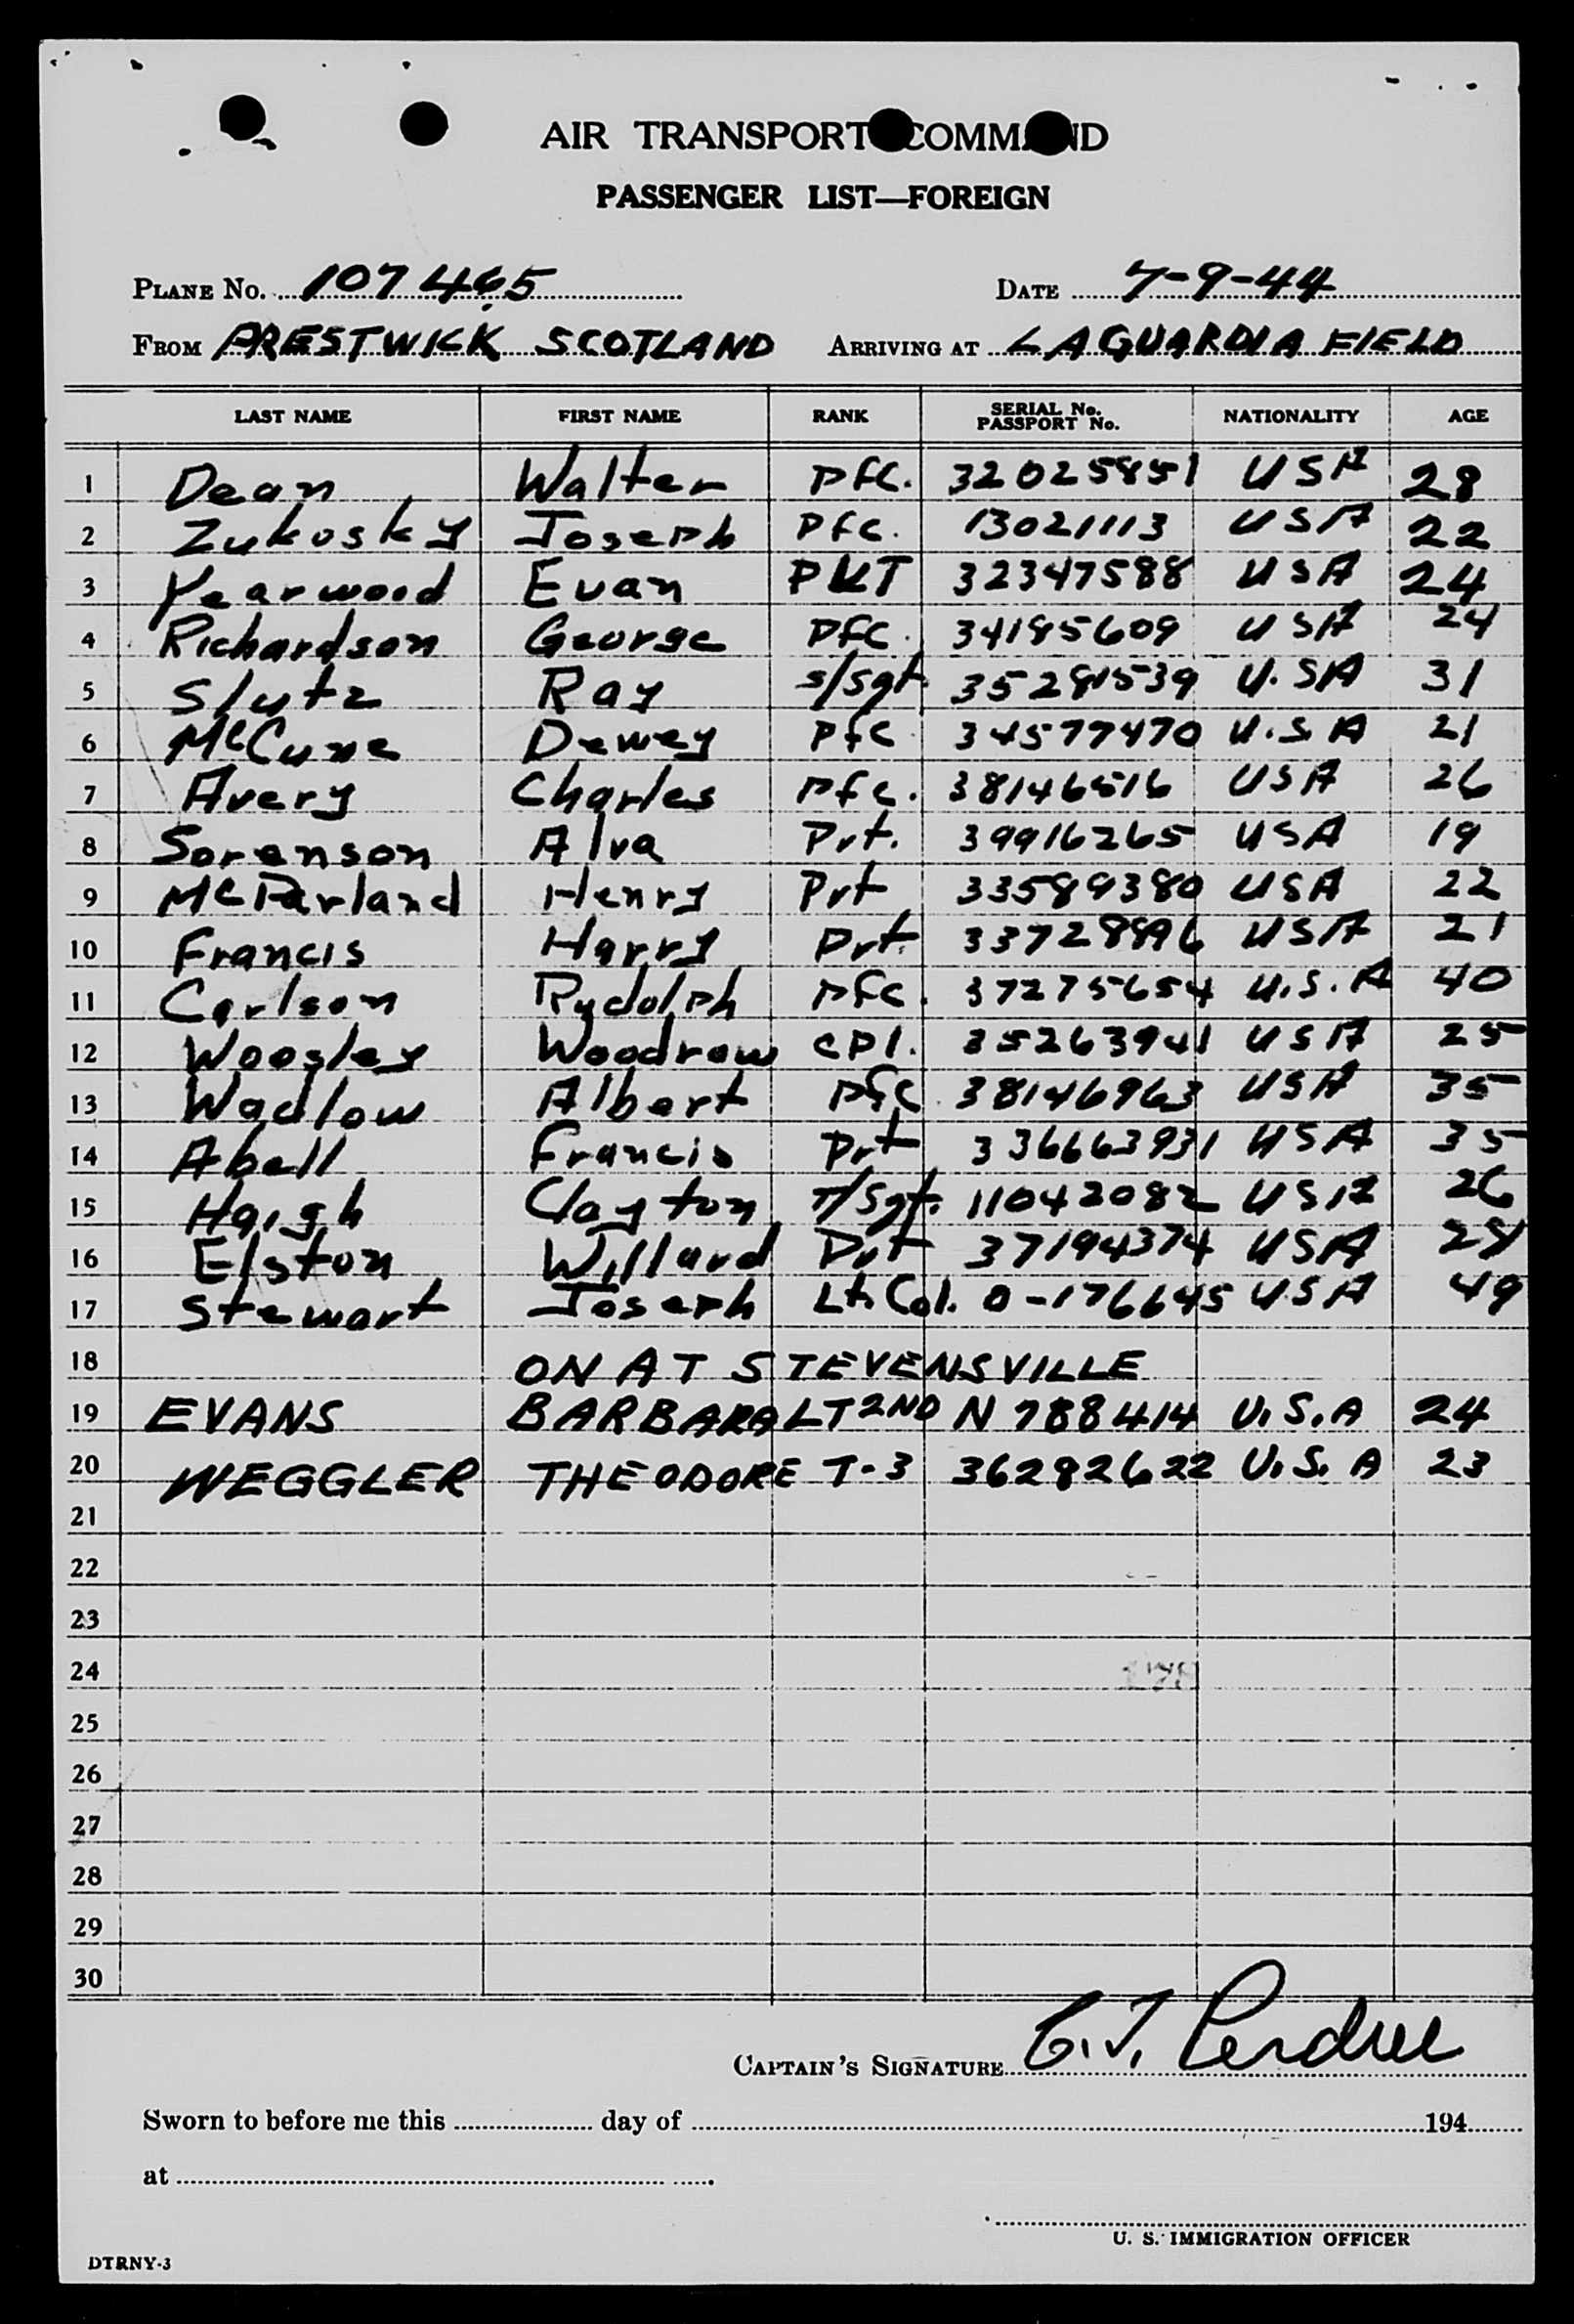 AIR TRANSPORT COMMAND
PASSENGER LIST—FOREIGN
PLANE No. 107465 DATE 7-9-44
FROM PRESTWICK SCOTLAND ARRIVING AT LAGUARDIA FIELD
LAST NAME FIRST NAME RANK SERIAL No. PASSPORT No. NATIONALITY AGE
1 Dean Walter Pfc. 32025851 USA 28
2 Zukosky Joseph Pfc. 13021113 USA 22
3 Yearwood Evan PVT 32347588 USA 24
4 Richardson George Pfc. 34185609 USA 24
5 Slutz Ray S/Sgt. 35281539 U.SA 31
6 McCune Dewey Pfc 34577470 U.S.A 21
7 Avery Charles Pfc. 38146516 USA 26
8 Sorenson Alva Pvt. 39916265 USA 19
9 Henry Pvt 33589380 USA 22
10 Francis Harry Pvt. 33728896 USA 21
11 Carlson Rudolph Pfc. 37275654 U.S.A 40
12 Woosley Woodrow Cpl. 35263941 USA 25
13 Wadlow Albert Pfc. 38146963 USA 35
14 Abell Francis Pvt 336663931 USA 35
15 Haigh Clayton T/Sgt. 11042082 USA 26
16 Elston Willard Pvt 37194374 USA
17 Stewart Joseph Lt. Col. O-176645 USA 49
18 ON AT STEVENSVILLE
19 EVANS BARBARA LT 2ND N 788414 U.S.A 24
20 WEGGLER THEODORE T-3 36292622 U.S.A 23
21
22
23
24
25
26
27
28
29
30
CAPTAIN'S SIGNATURE
Sworn to before me this day of 194
at
U. S. IMMIGRATION OFFICER
DTRNY-3